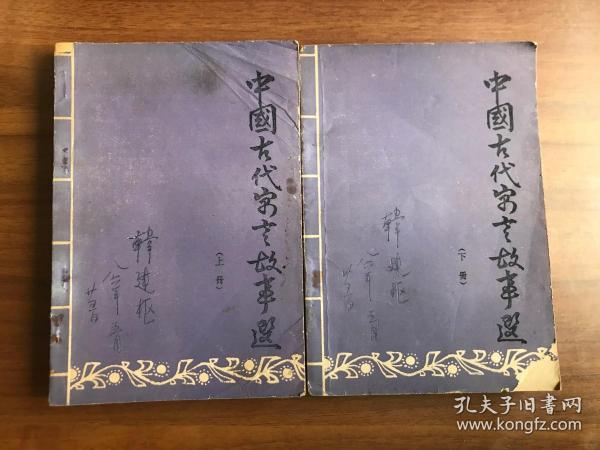 中國古代寓言故事選
(上册)
韓建枢
中國古代寓言故事選
(下册)
韓建枢
孔夫子旧書网
www.kongfz.com